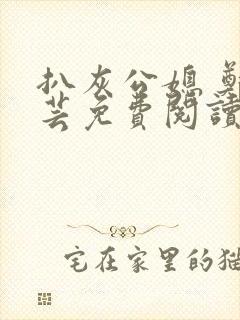 扒灰公媳 鄭
芸免費閱讀
宅在家里的猫